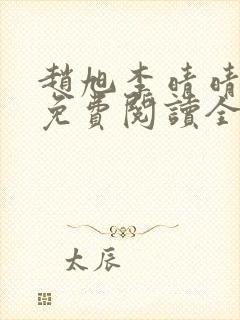 趙旭李晴晴
免費閱讀全
太辰